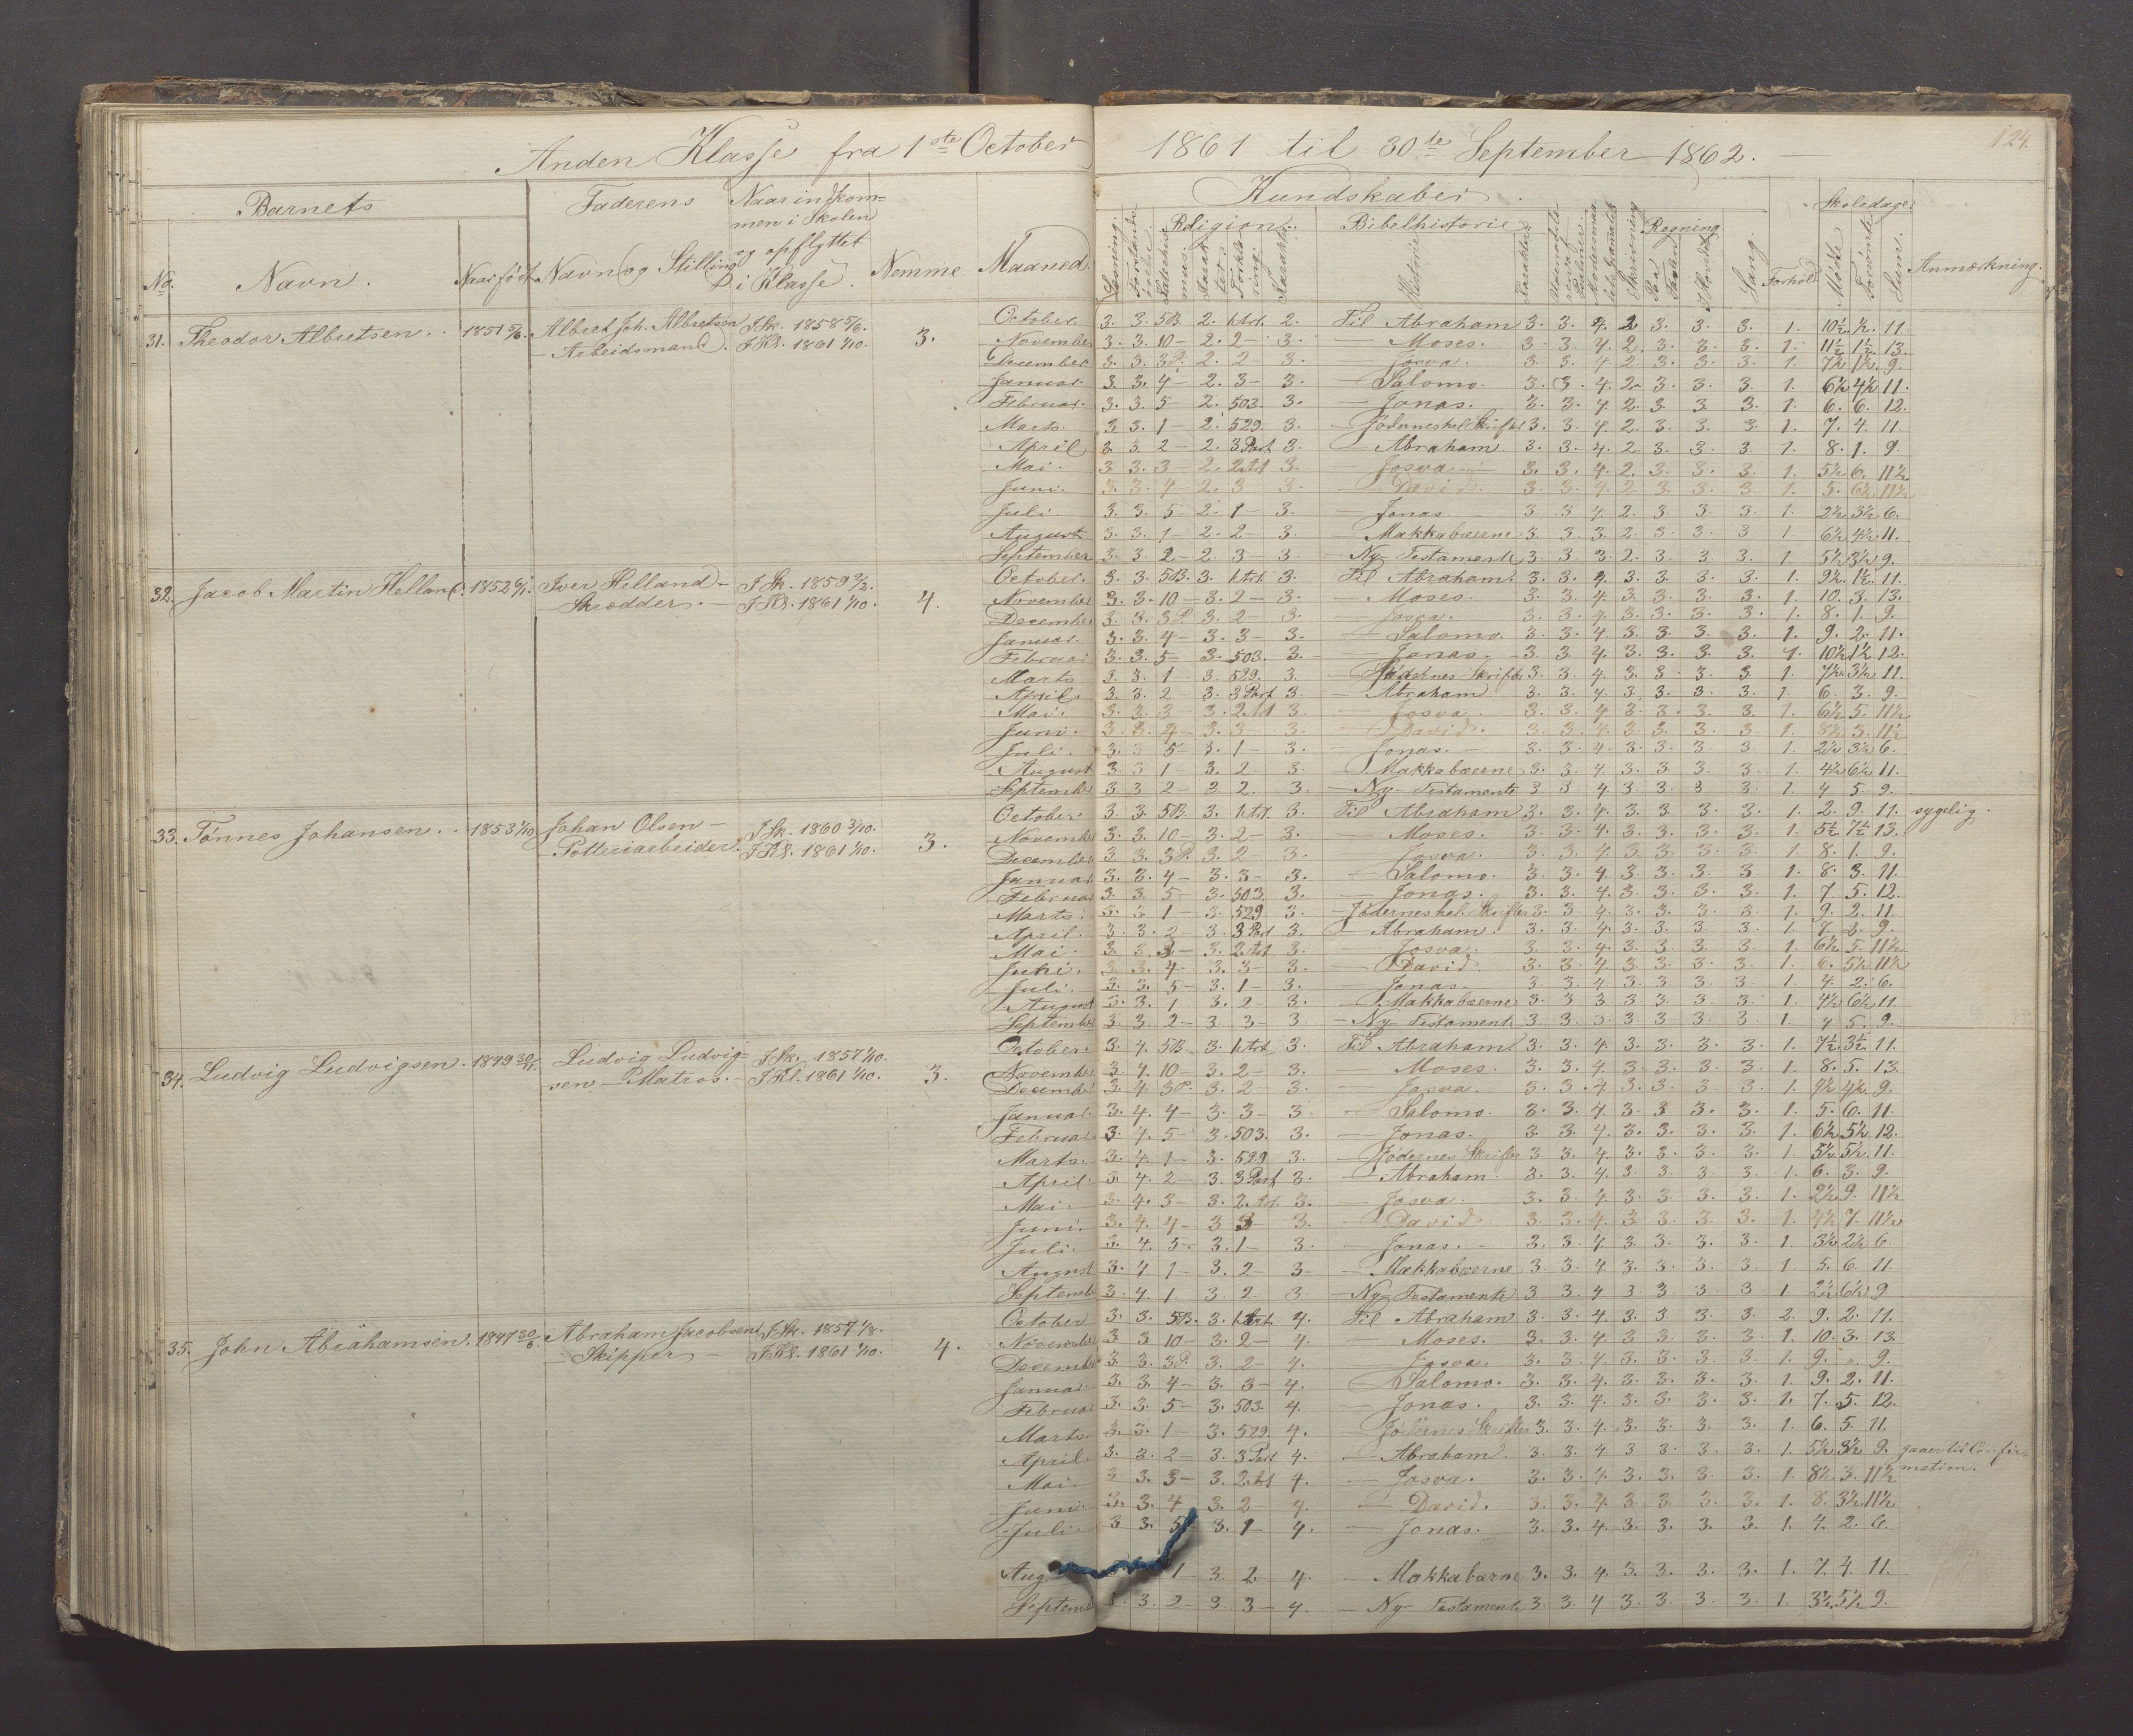 Anden Klasse fra 1ste October 1861 til 30te September 1862.
124.
Barnets Faderens Naar indkom-
men i Skolen
og opflyttet
i Klasse.
No. Navn. Naar født Navn og Stilling Nemme Maaned.
Kundskaber
Læsning. Religion. Bibelhistorie Regning Sang. Forhold Skoledage Anmærkning.
Historie Karakter Skrivning Paa Tavlen I Hovedet Mødte Forsømte Sum.
31. Theodor Albretsen. 1851 5/6. Albret Joh. Albretsen J Sk. 1858 5/6. 3.
Arbeidsmand. J Kl. 1861 1/10.
October. 3. 3. 5B. 2. 1 Art. 2. Til Abraham 3. 3. 4. 2 3. 3. 3. 1. 10½ ½. 11.
November 3. 3. 10 - 2. 2 - 3. — Moses. 3 3 4. 2. 3. 3. 3. 1. 11½ 1½. 13.
December 3. 3. 3P. 2. 2 3. — Josva. 3. 3. 4. 2. 3. 3. 3. 1. 7½ 1½. 9.
Januar. 3. 3. 4 - 2. 3 - 3. — Salomo. 3. 3. 4. 2. 3. 3. 3. 1. 6½ 4½ 11.
Februar. 3. 3. 5 - 2. 503. 3. — Jonas. 3. 3. 4. 2. 3. 3. 3. 1. 6. 6. 12.
Marts. 3. 3. 1 - 2. 529. 3. — Jødernes hel. Skrifter 3. 3. 4. 2. 3. 3. 3. 1. 7. 4. 11.
April 3. 3. 2 - 2. 3 Part 3. — Abraham. 3. 3. 4. 2. 3. 3. 3. 1. 8. 1. 9.
Mai. 3. 3. 3 - 2. 2 Art 3. — Josva. 3. 3. 4. 2. 3. 3. 3. 1. 5½. 6. 11½
Juni. 3. 3. 4 - 2. 3 3. — David. 3. 3. 4. 2. 3. 3. 3. 1. 5. 6½. 11½
Juli. 3. 3. 5 - 2. 1 - 3. — Jonas. 3. 3 4. 2. 3. 3. 3. 1. 2½ 3½ 6.
August 3. 3. 1 - 2. 2 - 3. — Makkabæerne 3. 3. 3. 2. 3. 3. 3 1. 6½ 4½ 11.
September 3. 3. 2 - 2. 3 - 3. — Ny Testamente 3. 3. 3. 2. 3. 3. 3. 1. 5½ 3½ 9.
32. Jacob Martin Helland. 1852 Iver Helland - J Sk. 1859 4.
Skrædder. J Kl. 1861 1/10.
October. 3. 3. 5B. 3. 1 Art. 3. Til Abraham. 3. 3. 4. 3. 3. 3. 3. 1. 9½. 1½. 11.
November 3. 3. 10 - 3. 2 - 3. — Moses. 3. 3. 4. 3. 3. 3. 3. 1. 10. 3. 13.
December 3. 3. 3P. 3. 2 3. — Josva. 3. 3. 4. 3. 3. 3. 3. 1. 8. 1. 9.
Januar. 3. 3. 4 - 3. 3 - 3. — Salomo. 3. 3. 4. 3. 3. 3. 3. 1. 9. 2. 11.
Februar 3. 3. 5 - 3. 503. 3. — Jonas. 3. 3. 4. 3. 3. 3. 3. 1. 10½ 1½ 12.
Marts 3. 3. 1 - 3. 529. 3. — Jødernes Skrifter 3. 3. 4. 3. 3. 3. 3. 1. 7½ 3½ 11.
April 3. 3. 2 - 3. 3 Part 3. — Abraham 3. 3. 4. 3. 3. 3. 3. 1. 6. 3. 9.
Mai. 3. 3. 3 - 3. 2 Art 3. — Josva. 3. 3. 4. 3. 3. 3. 3. 1. 6½. 5. 11½
Juni. 3. 3. 4 - 3. 3 3. — David. 3. 3. 4. 3. 3. 3. 3. 1. 8½ 3. 11½
Juli. 3. 3 5 - 3. 1 - 3. — Jonas. 3. 3. 4. 3. 3. 3. 3 1. 2½ 3½ 6.
August 3. 3 1 - 3. 2 - 3. — Makkabæerne 3. 3. 4. 3. 3. 3. 3. 1. 4½ 6½ 11.
September 3. 3 2 - 2 2. 3. — Ny Testamente 3. 3 4. 3. 3. 3 3. 1. 4 5. 9.
33. Tønnes Johansen. 1853 1/10. Johan Olsen - J Sk. 1860 3/10. 3.
Potteriarbeider. J Kl. 1861 1/10.
October. 3. 3. 5B. 3. 1 Art. 3. Til Abraham 3. 3. 4. 3. 3. 3. 3. 1. 2. 9. 11. sygelig.
November 3. 3. 10 - 3. 2 - 3. — Moses. 3. 3. 4. 3. 3. 3. 3. 1. 5½. 7½ 13.
December 3. 3. 3P. 3. 2 - 3. — Josva. 3. 3. 4. 3. 3. 3. 3. 1. 8. 1. 9.
Januar 3. 3. 4 - 3. 3 - 3. — Salomo. 3. 3. 4. 3. 3. 3. 3. 1. 8. 3. 11.
Februar 3. 3. 5 - 3. 503. 3. — Jonas. 3. 3. 4. 3. 3. 3. 3. 1. 7. 5. 12.
Marts. 3. 3 1 - 3. 529 3. — Jødernes hel. Skrifter 3. 3 4. 3. 3. 3. 3. 1. 9. 2. 11.
April. 3. 3. 2 - 3. 3 Part 3. — Abraham. 3. 3. 4. 3. 3. 3. 3. 1. 7. 2. 9.
Mai. 3. 3. 3 - 3. 2 Art 3. — Josva. 3. 3. 4. 3. 3. 3. 3. 1. 6½. 5. 11½
Juni. 3. 3. 4 - 3. 3 - 3. — David. 3. 3. 4. 3. 3. 3. 3. 1. 6. 5½ 11½
Juli. 3. 3. 5 - 3. 1 - 3. — Jonas. 3. 3. 4 3. 3. 3. 3 1. 4. 2. 6.
August 3. 3. 1 3. 2 - 3. — Makkabæerne 3. 3 3 3. 3. 3. 3. 1. 4½ 6½ 11.
September 3. 3. 2 - 3. 3 - 3 — Ny Testamente 3. 3. 3. 3. 3. 3. 3 1. 4 5. 9.
34. Ludvig Ludvigsen. 1849 Ludvig Ludvig= J Sk. 1857 1/10. 3.
sen - Matros. - J Kl. 1861 1/10.
October. 3. 4. 5B. 3. 1 Art. 3. Til Abraham. 3. 3. 4. 3. 3. 3. 3. 1. 7½. 3½. 11.
November 3. 4. 10 - 3. 2 - 3. Moses. 3. 3. 4. 3. 3. 3. 3. 1. 8. 5. 13.
December 3. 4. 3P. 3. 2 - 3. — Josva. 3. 3. 4. 3. 3. 3. 3. 1. 4½ 4½. 9.
Januar. 3. 4. 4 - 3. 3 - 3 — Salomo. 3. 3. 4. 3. 3 3. 3. 1. 5. 6. 11.
Februar. 3. 4. 5 - 3. 503. 3. — Jonas. 3. 3. 4. 3. 3. 3. 3. 1. 6½ 5½ 12.
Marts. 3. 4. 1 - 3. 529 3. — Jødernes Skrifter 3 3. 4. 3. 3. 3. 3. 1. 5½. 5½. 11.
April. 3. 4. 2 - 3. 3 Part 3. — Abraham. 3. 3. 4. 3. 3 3. 3. 1. 6. 3. 9.
Mai. 3. 4. 3 - 3. 2. Art. 3. — Josva. 3. 3. 4. 3. 3. 3. 3. 1. 2½ 9. 11½
Juni. 3. 4. 4 - 3 3 3. — David. 3. 3. 4. 3. 3. 3. 3. 1. 4½ 7. 11½
Juli. 3. 4. 5 - 3. 1 - 3. — Jonas. 3. 3. 4. 3. 3. 3. 3. 1 3½ 2½ 6
August 3. 4 1 - 3. 2 - 3 — Makkabæerne 3 3. 4. 3. 3. 3. 3. 1. 5. 6. 11.
September 3. 4. 1. 3. 2. 3. — Ny Testamente 3 3. 4 3 3 3 3 1 2½ 6½ 9
35. John Abrahamsen. 1847 30/6. Abraham Jacobsen J Sk. 1857 1/8. 4.
Skipper — J Kl. 1861 1/10.
October 3. 3. 5B. 3. 1 Art. 4. Til Abraham 3. 3. 4. 3. 3. 3. 3. 2. 9. 2. 11.
November 3. 3. 10 - 3. 2 - 4. — Moses. 3. 3. 4. 3. 3. 3. 3. 1. 10. 3. 13.
December 3. 3. 3P. 3. 2 - 4. — Josva. 3. 3. 4. 3. 3. 3. 3. 1. 9. „ 9.
Januar. 3. 3. 4 - 3. 3 - 4. — Salomo. 3. 3. 4. 3. 3. 3. 3. 1. 9. 2. 11.
Februar 3. 3. 5 - 3. 503. 4. — Jonas. 3. 3. 4. 3. 3. 3. 3. 1. 7. 5. 12.
Marts 3. 3. 1 - 3. 529. 4. — Jødernes Skrifter 3. 3. 4. 3. 3. 3. 3. 1. 6. 5. 11.
April. 3. 3. 2 - 3. 3 Part 4. — Abraham 3. 3. 4 3. 3. 3. 3. 1. 5½. 3½ 9. gaaer til Confir-
mation.
Mai. 3. 3. 3 - 3. 2 Art 4. — Josva. 3. 3. 4. 3. 3. 3. 3. 1. 8½. 3. 11½
Juni 3. 3. 4 3. 2 - 4. — David. 3. 3. 4. 3. 3. 3. 3. 1. 8. 3½. 11½
Juli 3 3. 5 3. 1 - 4. — Jonas. 3. 3. 4. 3. 3. 3. 3. 1. 4. 2. 6.
Aug 1 3. 2 4. — Makkabærne 3. 3. 4. 3. 3. 3. 3. 1. 7. 4. 11.
Septemb 3. 3. 2 - 3. 3 - 4. — Ny Testamente 3 3. 4 3. 3. 3. 3. 1. 3½. 5½ 9.